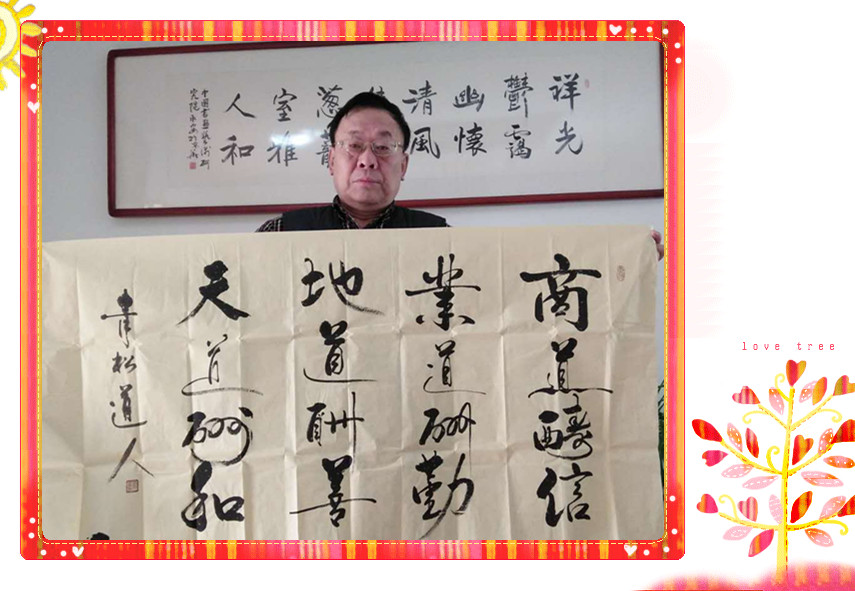 祥光
鬱靄
幽懷
清風
蔥
室雅
人和
中國書画藝術研
究院
商道醻信
業道酬勤
地道酬善
天道酬和
青松道人
love tree